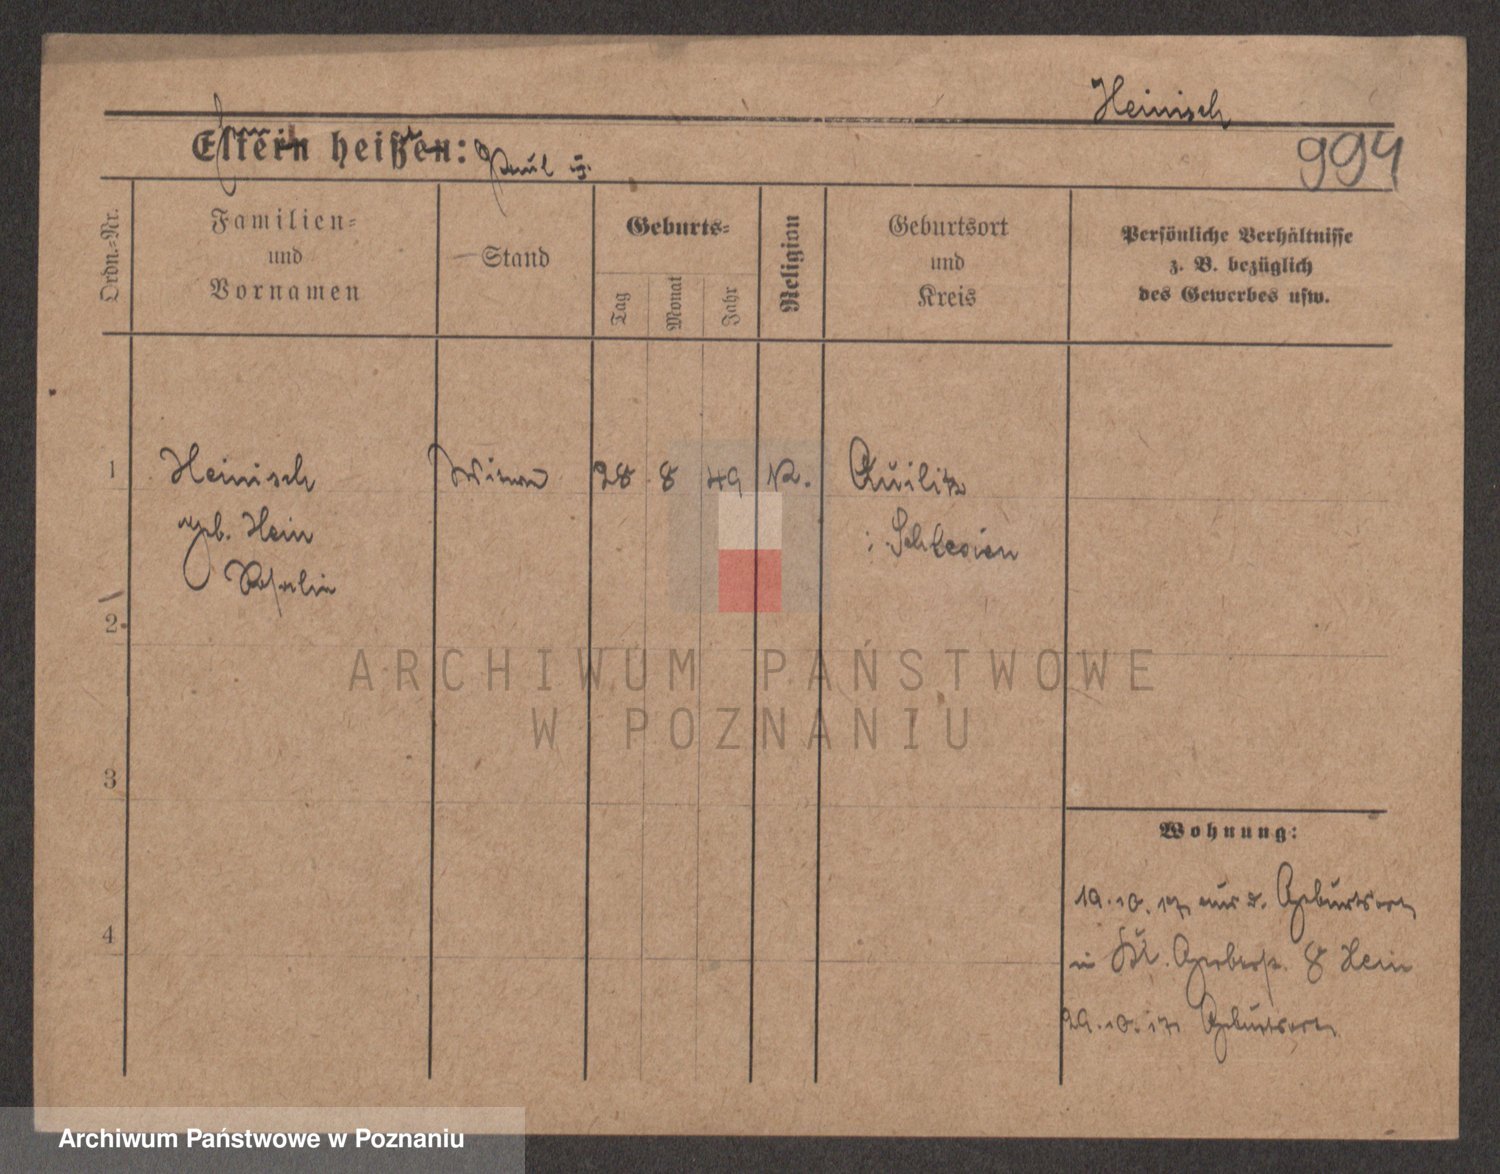 Heinisch
994
Eltern heißen: Paul
Ordn.-Nr.
Familien-
und
Vornamen
Stand
Geburts-
Tag
Monat
Jahr
Religion
Geburtsort
und
Kreis
Persönliche Verhältnisse
z. B. bezüglich
des Gewerbes usw.
1 Heinisch Witwe 28 8 49 K.
geb. Hein Schlesien
Rosalie
2
3
4
Wohnung:
19.10.17 aus d. Geburtsort
in Kl. Gerberstr. 8 Hein
29.10.17 Geburtsort
ARCHIWUM PAŃSTWOWE
W POZNANIU
Archiwum Państwowe w Poznaniu